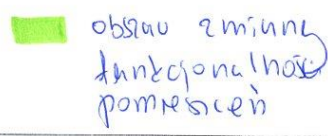 obszar zmiany
funkcjonalności
pomieszczeń